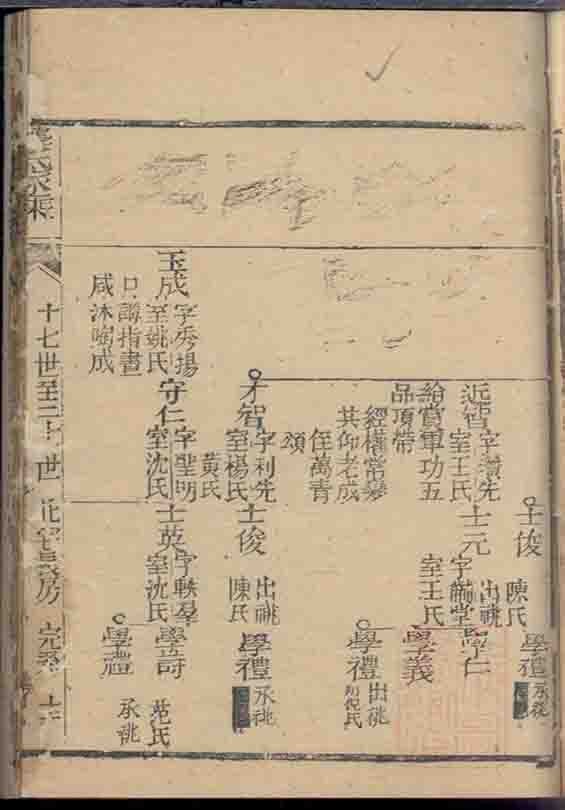 士俊
陳氏
學禮
承祧
近智
字瓚先
室王氏
給賞軍功五
品項帶
經權常變
其仰老成
侄萬青
頌
士元
出祧
室王氏
學仁
學義
學禮
出祧
才智
字利先
室楊氏
黃氏
士俊
出祧
陳氏
學禮
承祧
玉成
字秀揚
室姚氏
口講指畫
咸沐陶成
守仁
字聖明
室沈氏
士英
字軼羣
室沈氏
學詩
范氏
學禮
承祧
十七世至二十世